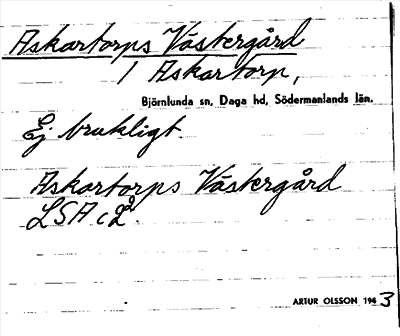 Askartorps Västergård
/ Askartorp,
Björnlunda sn, Daga hd, Södermanlands län.
Ej brukligt.
Askartorps Västergård
LSA c Å.
ARTUR OLSSON 1943